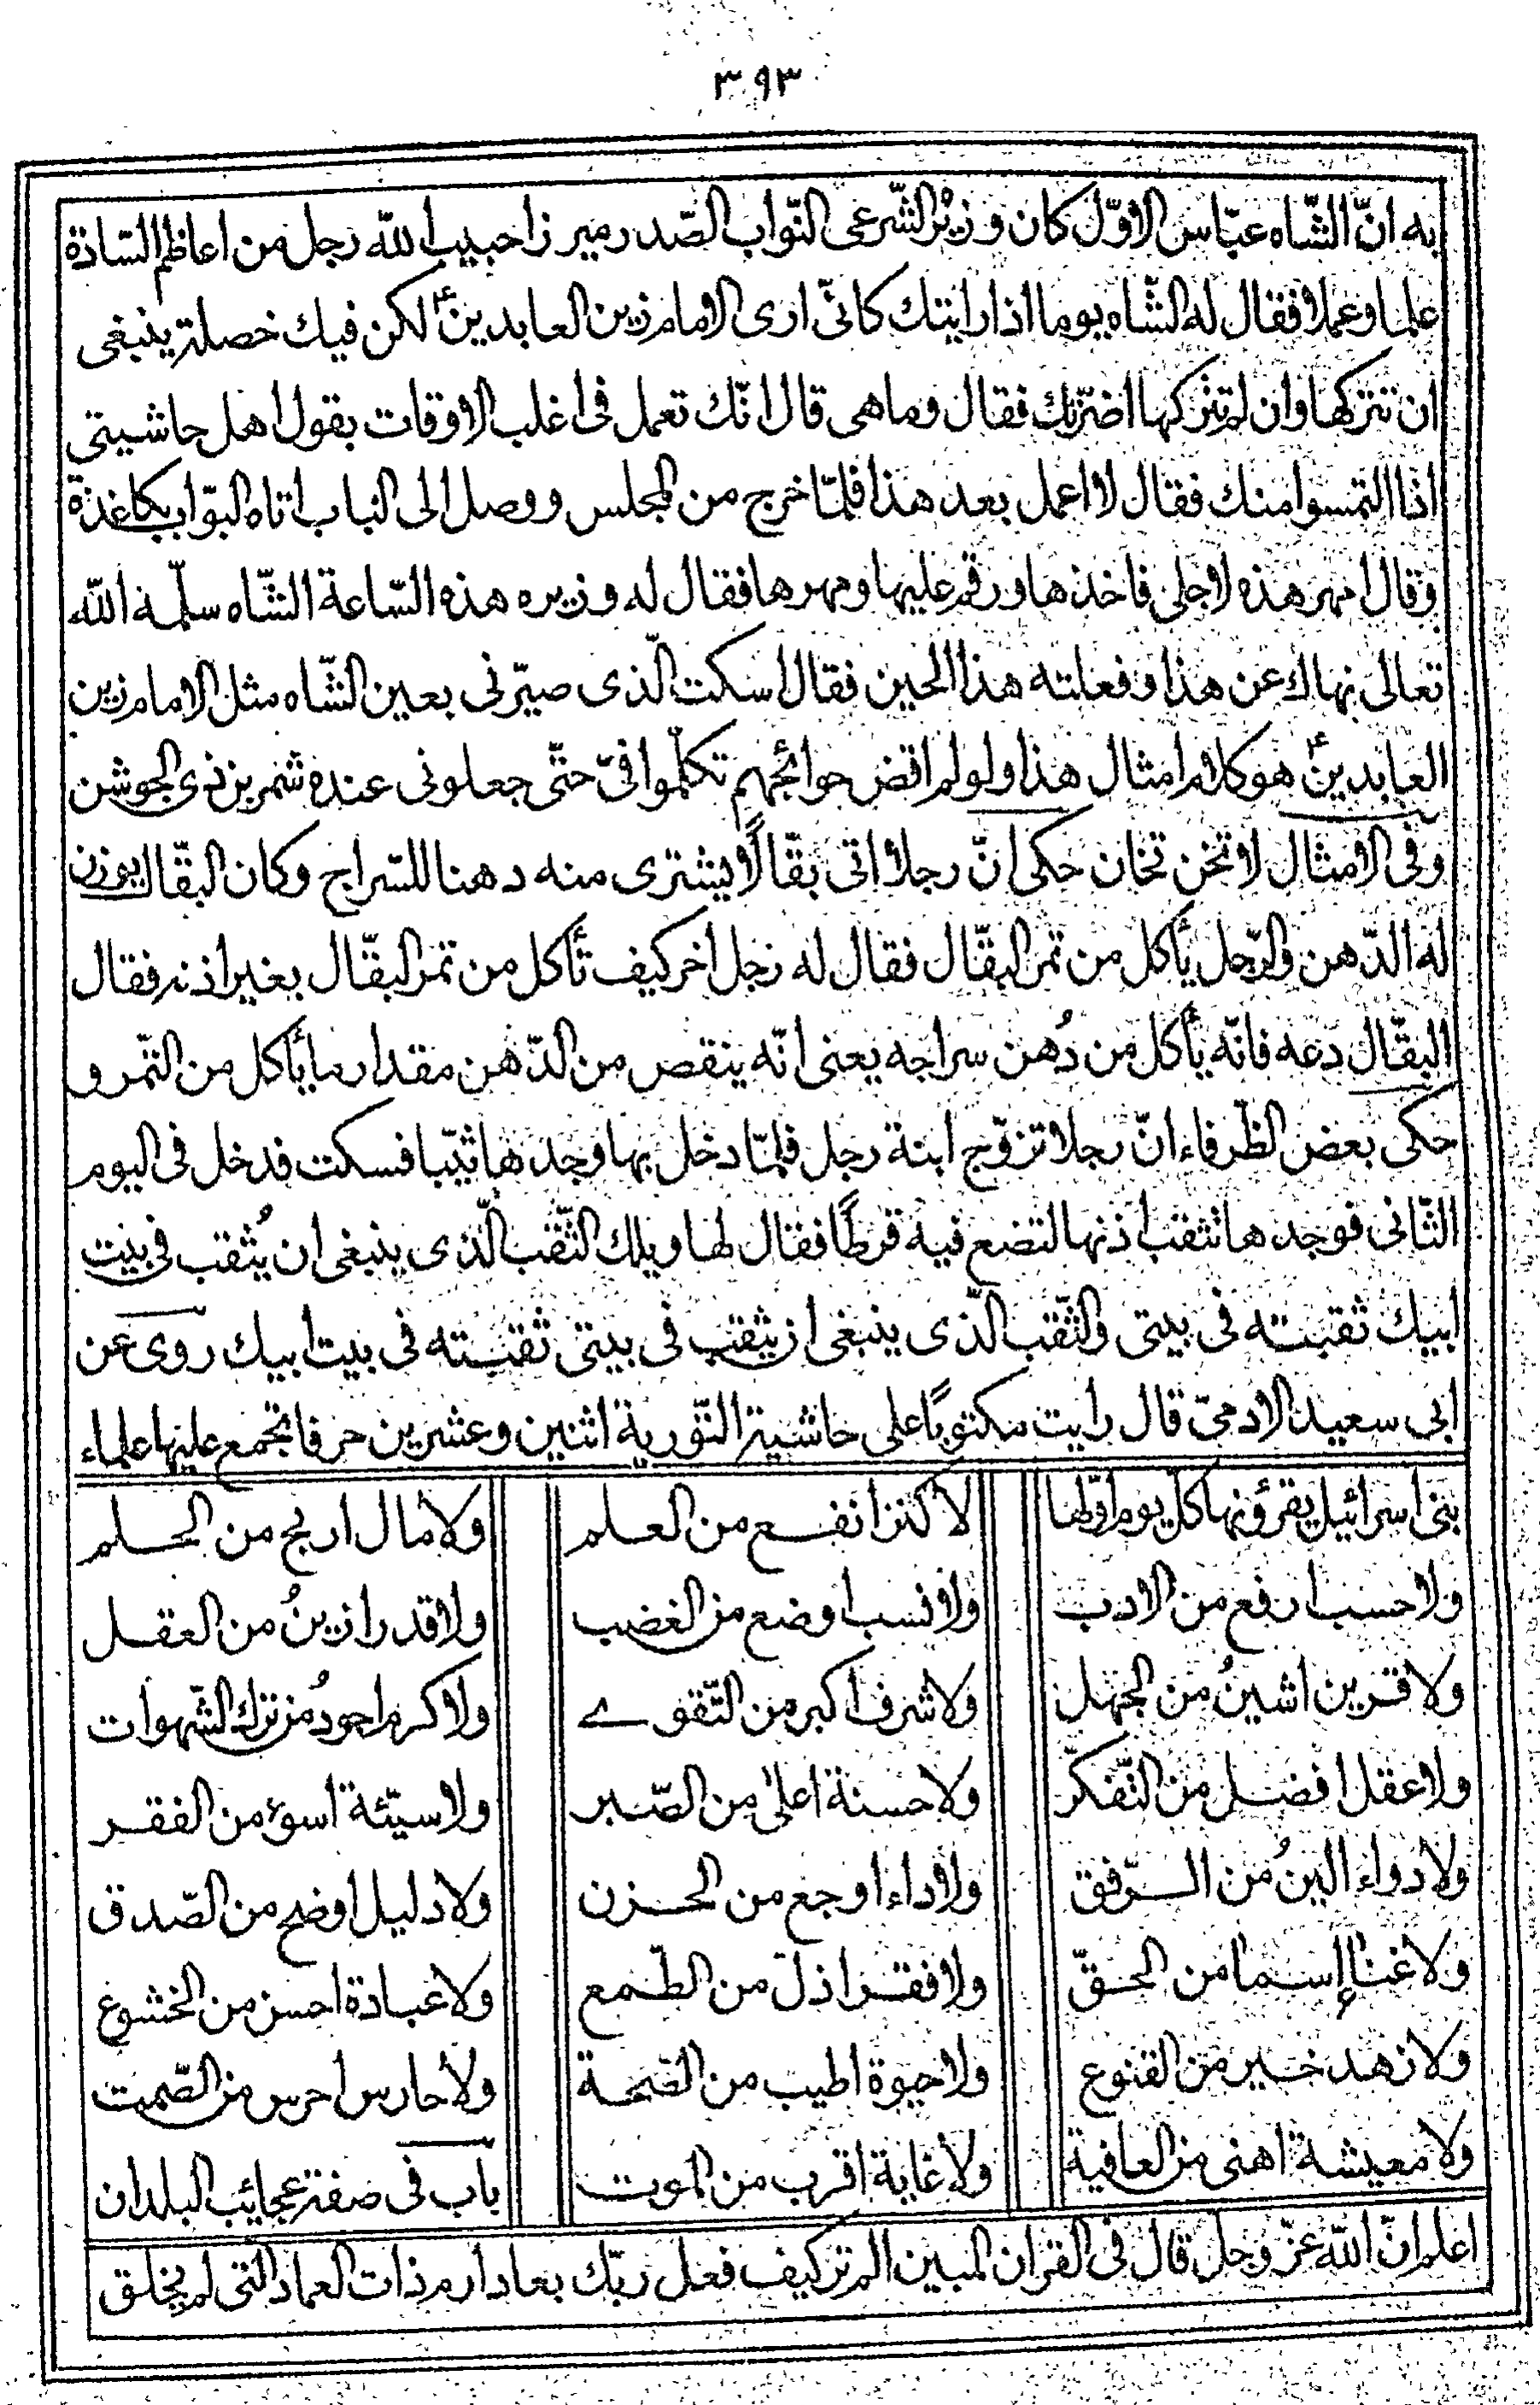 ٣٩٣
به انّ الشّاه عبّاس الاوّل كان وزيْر الشّرعى النّواب الصّدر ميرزا حبيب الله رجل من اعاظم السّادة
علما وعملا فقال له الشّاه يوما اذا رايتك كانّى ارى الامام زين العابدينؑ لكن فيك خصلة ينبغى
ان تتركها وان لم تتركها اضرّتك فقال وما هى قال انّك تعمل فى اغلب الاوقات بقول اهل حاشيتى
اذا التمسوا منك فقال لا اعمل بعد هذا فلمّا خرج من المجلس ووصل الى الباب اتاه البوّاب بكاغذة
وقال امهر هذه لاجلى فاخذها ورقم عليها ومهرها فقال له وزيره هذه السّاعة الشّاه سلّمه الله
تعالى نهاك عن هذا وفعلته هذا الحين فقال اسكت الّذى صيّرنى بعين الشّاه مثل الامام زين
العابدينؑ هو كلام امثال هذا ولو لم اقض حوائجهم تكلّموا فىّ حتّى جعلونى عنده شمر بن ذى الجوشن
وفى الامثال لا تخن تخان حكى انّ رجلا اتى بقّالًا يشترى منه دهنا للسّراج وكان البقّال يوزن
له الدّهن والرّجل يأكل من تمر البقّال فقال له رجل اخر كيف تأكل من تمر البقّال بغير اذنه فقال
البقّال دعه فانّه يأكل من دُهن سراجه يعنى انّه ينقص من الدّهن مقدار ما يأكل من التّمر و
حكى بعض الظّرفاء انّ رجلا تزوّج ابنة رجل فلمّا دخل بها وجدها ثيّبا فسكت فدخل فى اليوم
الثّانى فوجدها تثقب اذنها لتضع فيه قرطًا فقال لها ويلك الثّقب الّذى ينبغى ان يُثقب فى بيت
ابيك ثقبته فى بيتى والثّقب الّذى ينبغى ان يثقب فى بيتى ثقبته فى بيت ابيك روى عن
ابى سعيد الادمىّ قال رايت مكتوبًا على حاشية التّورية اثنين وعشرين حرفا تجمع عليها علماء
بنى اسرائيل يقرؤنها كلّ يوم اوّلها لا كنز انفع من العلم ولا مال اربح من الحلم
ولا حسب ارفع من الادب ولا نسب اوضع من الغضب ولا قدر ازينُ من العقل
ولا قرين اشينُ من الجهل ولا شرف اكبر من التّقوى ولا كرم اجودُ من ترك الشّهوات
ولا عقل افضل من التّفكّر ولا حسنة اعلىٰ من الصّبر ولا سيّئة اسوء من الفقر
ولا دواء الينُ من الرّفق ولا داء اوجع من الحزن ولا دليل اوضح من الصّدق
ولا غنا إسما من الحقّ ولا فقر اذل من الطّمع ولا عبادة احسن من الخشوع
ولا زهد خير من القنوع ولا حيوة اطيب من الصّحة ولا حارس احرس من الصّمت
ولا معيشة اهنى من العافية ولا غاية اقرب من الموت باب فى صفة عجائب البلدان
اعلم انّ الله عزّ وجل قال فى القران المبين الم تر كيف فعل ربّك بعاد ارم ذات العماد الّتى لم يخلق